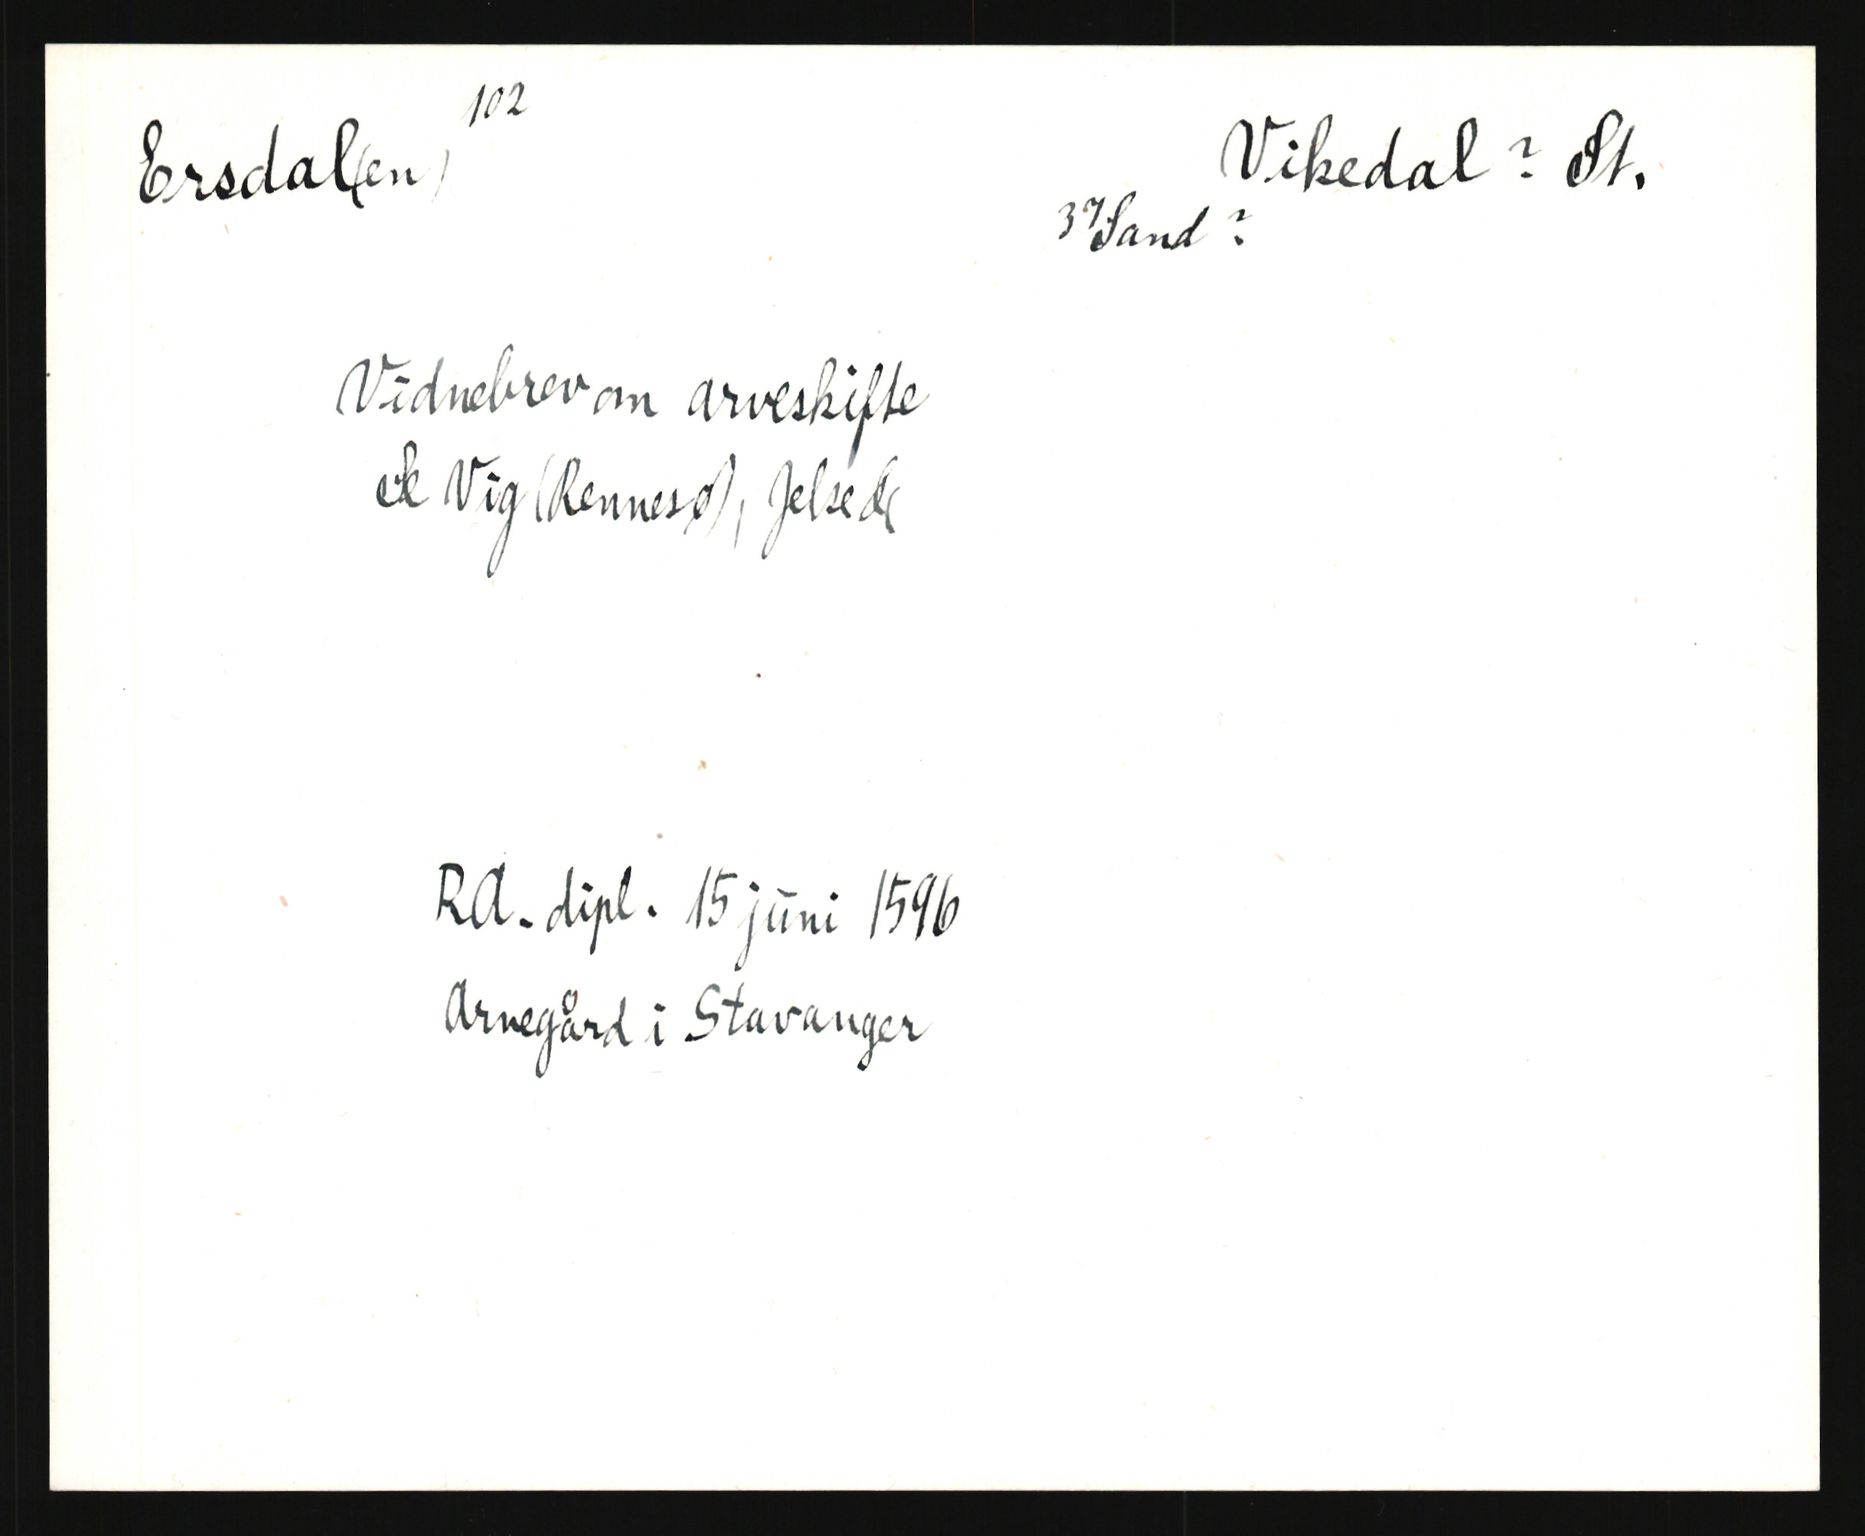 Ersdal(en) 102
Vikedal ? St.
37 Sand ?
Vidnebrev om arveskifte
se Vig (Rennesø), Jelse &
RA. dipl. 15 juni 1596
Arnegård i Stavanger